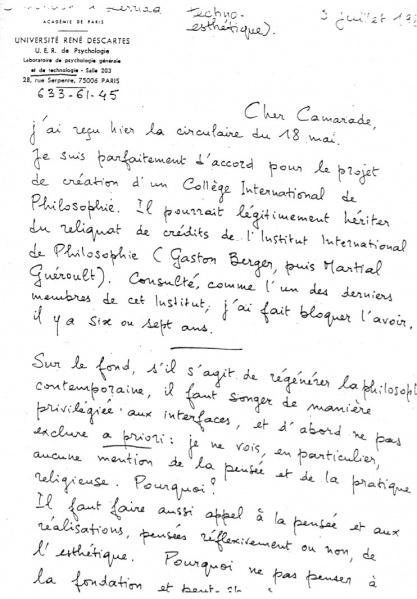 à Derrida techno-
esthétique).
3 juillet
ACADÉMIE DE PARIS
UNIVERSITÉ RENÉ DESCARTES
U. E. R. de Psychologie
Laboratoire de psychologie générale
et de technologie - Salle 203
28, rue Serpente, 75006 PARIS
633-61-45
Cher Camarade,
j'ai reçu hier la circulaire du 18 mai.
Je suis parfaitement d'accord pour le projet
de création d'un Collège International de
Philosophie. Il pourrait légitimement hériter
du reliquat de crédits de l'Institut International
de Philosophie (Gaston Berger, puis Martial
Guéroult). Consulté, comme l'un des derniers
membres de cet Institut, j'ai fait bloquer l'avoir,
il y a six ou sept ans.
Sur le fond, s'il s'agit de régénérer la philosoph
contemporaine, il faut songer de manière
privilégiée aux interfaces, et d'abord ne pas
exclure a priori : je ne vois, en particulier,
aucune mention de la pensée et de la pratique
religieuse. Pourquoi?
Il faut faire aussi appel à la pensée et aux
réalisations, pensées réflexivement ou non, de
l'esthétique. Pourquoi ne pas penser à
la fondation et peut-être